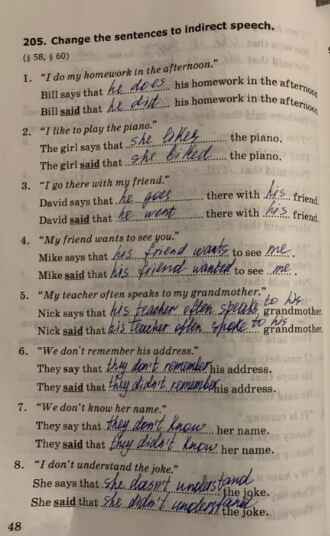 205. Change the sentences to indirect speech.
(§ 58, § 60)
1. "I do my homework in the afternoon."
Bill says that he does his homework in the afternoon
Bill said that he did his homework in the afternoon
2. "I like to play the piano."
The girl says that she likes the piano.
The girl said that she liked the piano.
3. "I go there with my friend."
David says that he goes there with his friend
David said that he went there with his friend
4. "My friend wants to see you."
Mike says that his friend wants to see me.
Mike said that his friend wanted to see me.
5. "My teacher often speaks to my grandmother."
Nick says that his teacher often speaks to his grandmother
Nick said that his teacher often spoke to his grandmothe
6. "We don't remember his address."
They say that they don't remember his address.
They said that they didn't remember his address.
7. "We don't know her name."
They say that they don't know her name.
They said that they didn't know her name.
8. "I don't understand the joke."
She says that she dosn't understand the joke.
She said that she didn't understand the joke.
48